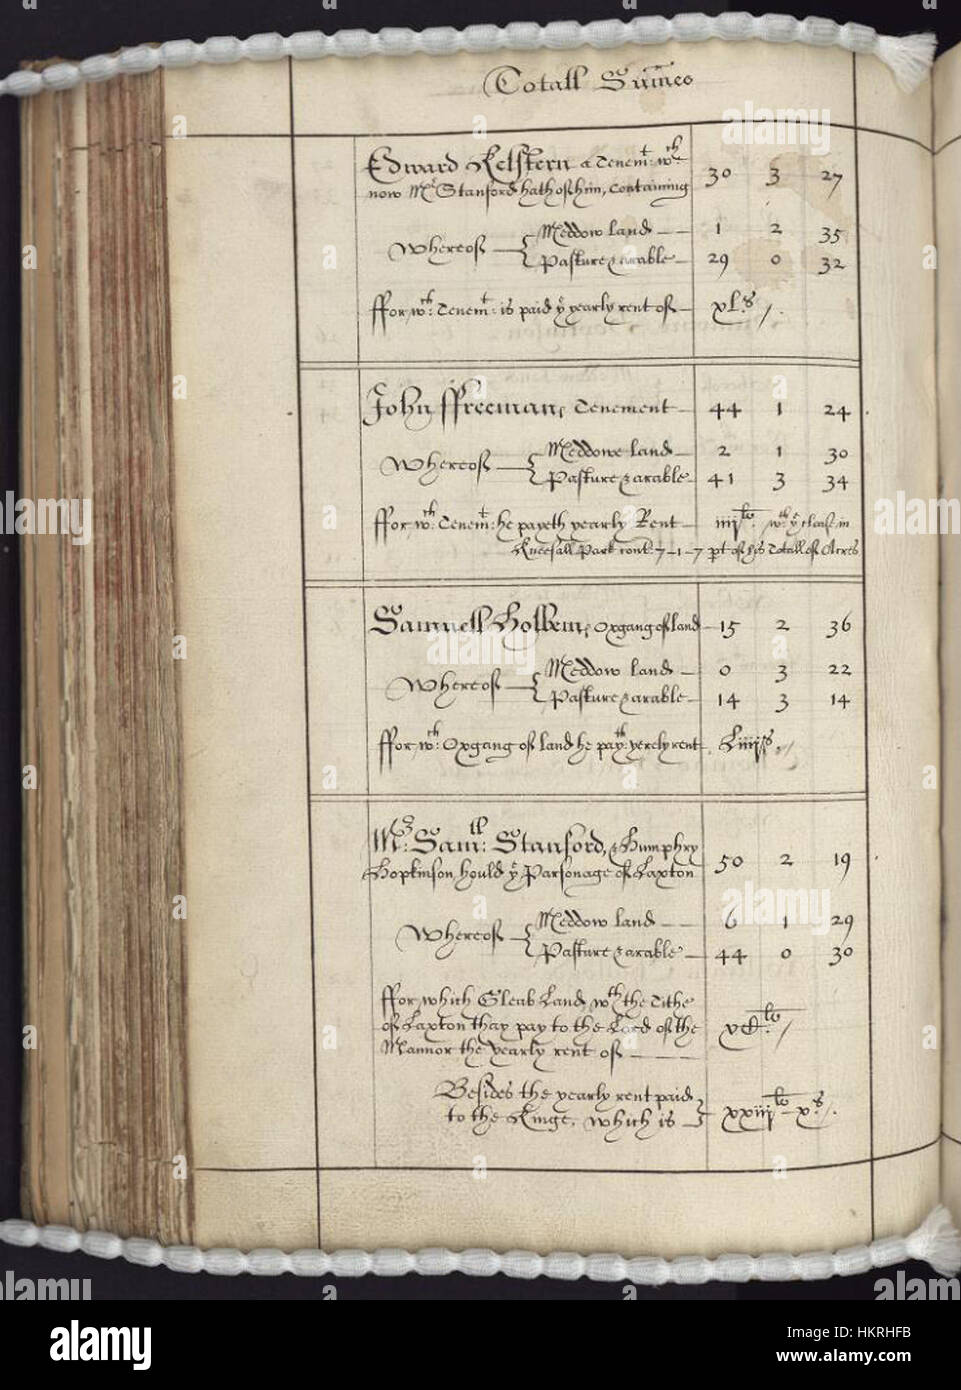 Totall Sum̃es
Edward Kelstern a Tenemt: wch
now Mr Stanford hath of him, Containing 30 3 27
Whereof Meddow land 1 2 35
Pasture & arable 29 0 32
ffor wch: Tenemt: is paid ye yearly rent of xls.
John ffreeman, Tenement 44 1 24
Whereof Meddowe land 2 1 30
Pasture & arable 41 3 34
ffor wch: Tenemt: he payeth yearly Rent iiijlb: wth ye close in
Kneesall Park cont: 7-1-7 pt of his Totall of Acres
Samuell Holbem, Oxgang of land 15 2 36
Whereof Meddow land 0 3 22
Pasture & arable 14 3 14
ffor wch: Oxgang of land he payth: yerely rent Liiijs.
Mr: Samll: Stanford, & Humphry
Hopkinson, hould ye Parsonage of Laxton 50 2 19
Whereof Meddow land 6 1 29
Pasture & arable 44 0 30
ffor which Gleab Land wth the Tithe
of Laxton thay pay to the Lord of the
Mannor the yearly rent of
Besides the yearly rent paid
to the Kinge, which is xxiijlb-xs.
alamy
a
alamy
Image ID: HKRHFB
www.alamy.com